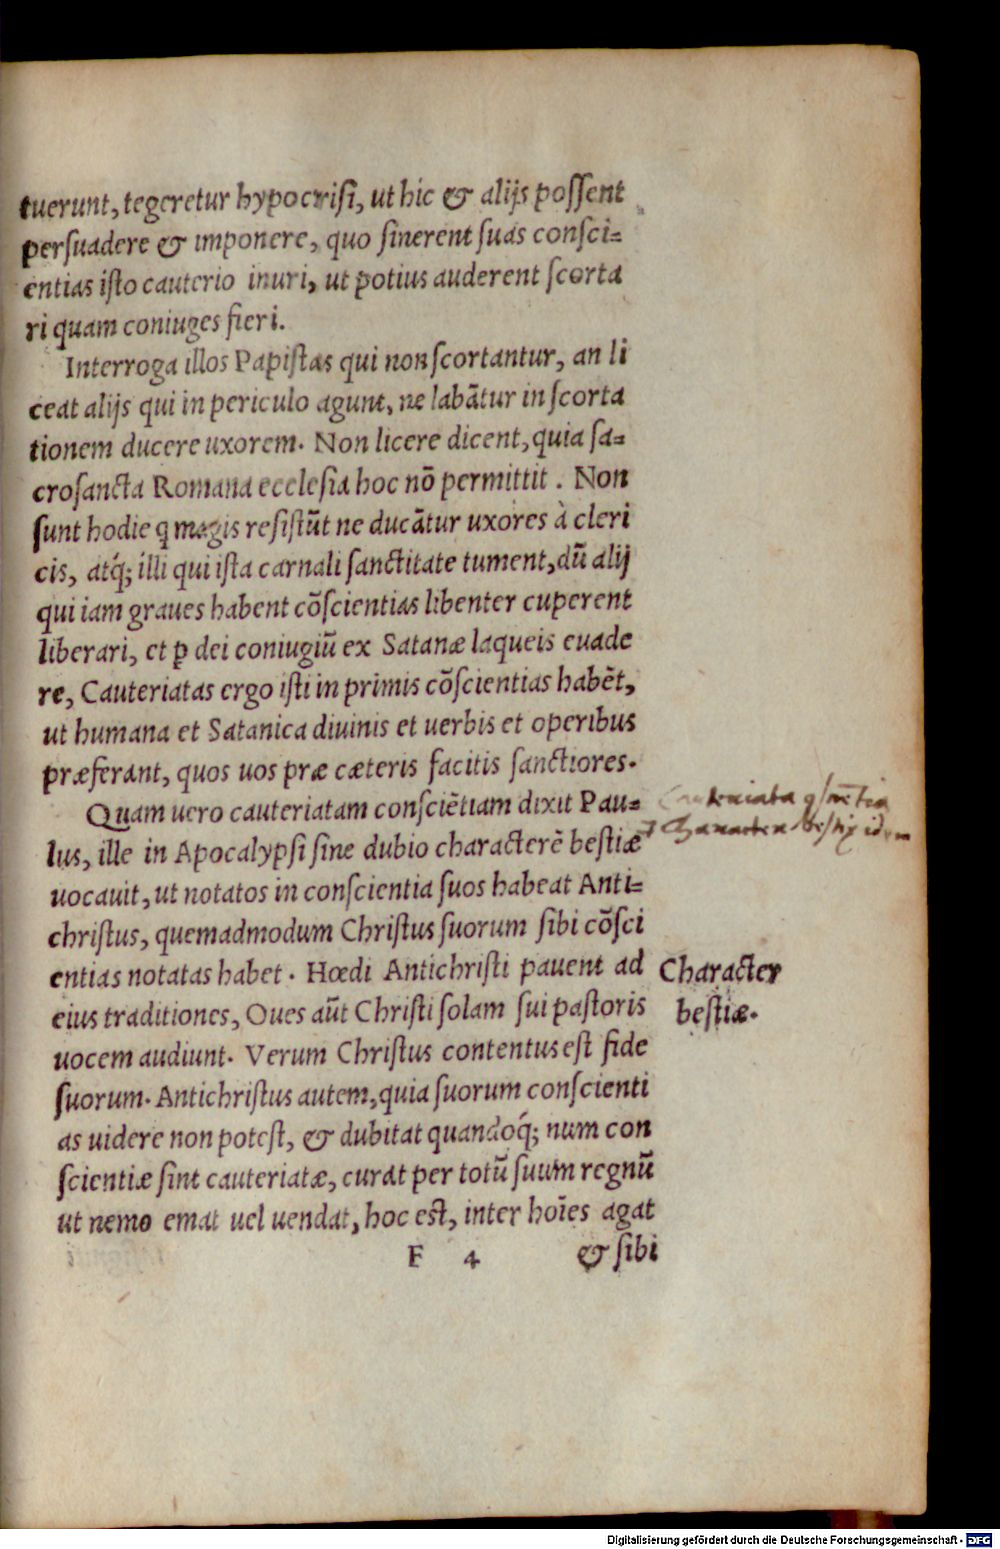 tuerunt, tegeretur hypocrisi, ut hic & alijs possent
persuadere & imponere, quo sinerent suas consci=
entias isto cauterio inuri, ut potius auderent scorta
ri quam coniuges fieri.
Interroga illos Papistas qui non scortantur, an li
ceat alijs qui in periculo agunt, ne labātur in scorta
tionem ducere uxorem. Non licere dicent, quia sa=
crosancta Romana ecclesia hoc nō permittit. Non
sunt hodie q magis resistūt ne ducātur uxores à cleri
cis, atq́; illi qui ista carnali sanctitate tument, dū alij
qui iam graues habent cōscientias libenter cuperent
liberari, et ꝑ dei coniugiū ex Satanæ laqueis euade
re, Cauteriatas ergo isti in primis cōscientias habēt,
ut humana et Satanica diuinis et uerbis et operibus
præferant, quos uos præ cæteris facitis sanctiores.
Quam uero cauteriatam consciētiam dixit Pau=
lus, ille in Apocalypsi sine dubio characterē bestiæ
uocauit, ut notatos in conscientia suos habeat Anti=
christus, quemadmodum Christus suorum sibi cōsci
entias notatas habet. Hœdi Antichristi pauent ad
eius traditiones, Oues aūt Christi solam sui pastoris
uocem audiunt. Verum Christus contentus est fide
suorum. Antichristus autem, quia suorum conscienti
as uidere non potest, & dubitat quandoq́; num con
scientiæ sint cauteriatæ, curat per totū suum regnū
ut nemo emat uel uendat, hoc est, inter hoīes agat
F 4 & sibi
Cauteriata
Character bestiæ idem
Character
bestiæ.
Digitalisierung gefördert durch die Deutsche Forschungsgemeinschaft - DFG